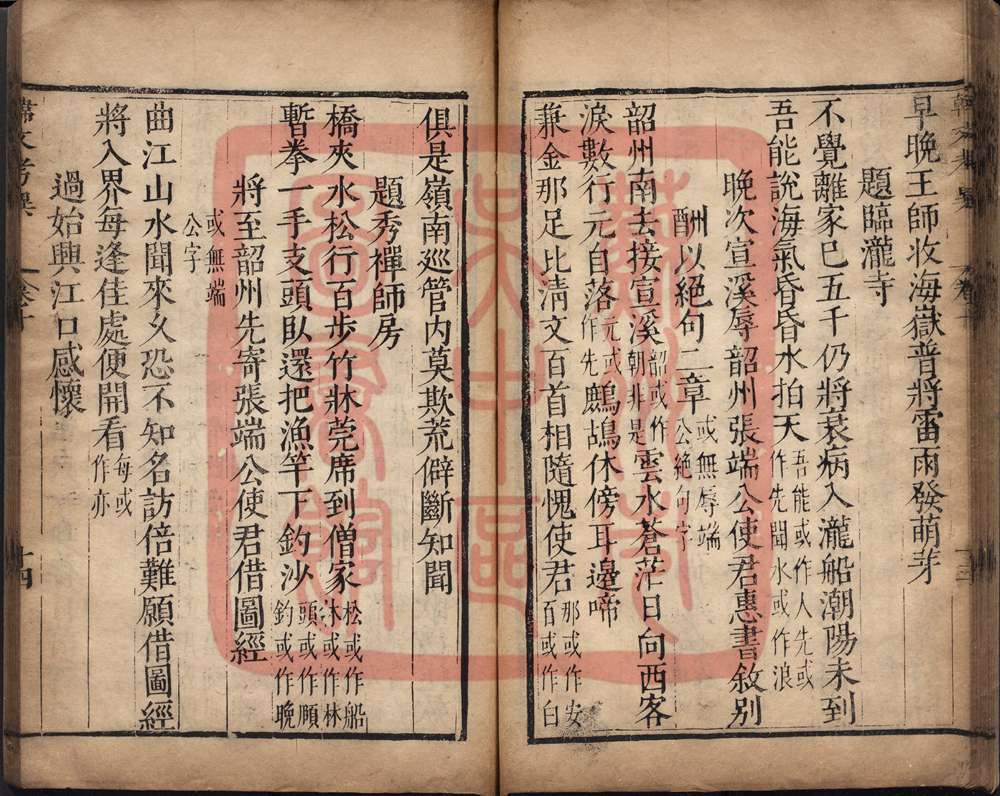 早晚王師收海嶽普將雷雨發萌芽
題臨瀧寺
不覺離家已五千仍將衰病入瀧船潮陽未到
吾能說海氣昏昏水拍天吾能或作人先或作先聞水或作浪
晚次宣溪辱韶州張端公使君惠書敘別
酬以絕句二章或無辱端公絕句字
韶州南去接宣溪韶或作朝非是雲水蒼茫日向西客
淚數行元自落元或作先鷓鴣休傍耳邊啼
兼金那足比清文百首相隨愧使君那或作安百或作白
俱是嶺南巡管內莫欺荒僻斷知聞
題秀禪師房
橋夾水松行百步竹牀莞席到僧家松或作船牀或作林
暫拳一手支頭臥還把漁竿下釣沙頭或作頤釣或作晚
將至韶州先寄張端公使君借圖經
或無端公字
曲江山水聞來久恐不知名訪倍難願借圖經
將入界每逢佳處便開看每或作亦
過始興江口感懷
韓文考異 卷十 十四